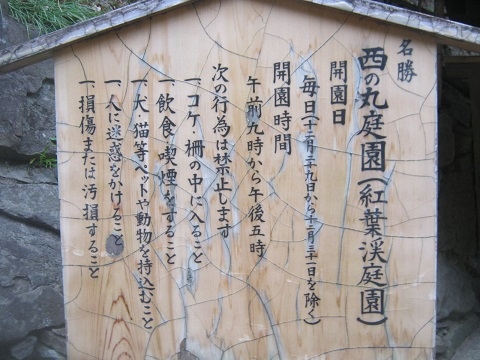 名勝
西の丸庭園(紅葉渓庭園)
開園日
毎日(十二月二十九日から十二月三十一日を除く)
開園時間
午前九時から午後五時
次の行為は禁止します
一、コケ・柵の中に入ること
一、飲食・喫煙をすること
一、犬・猫等ペットや動物を持込むこと
一、人に迷惑をかけること
一、損傷または汚損すること